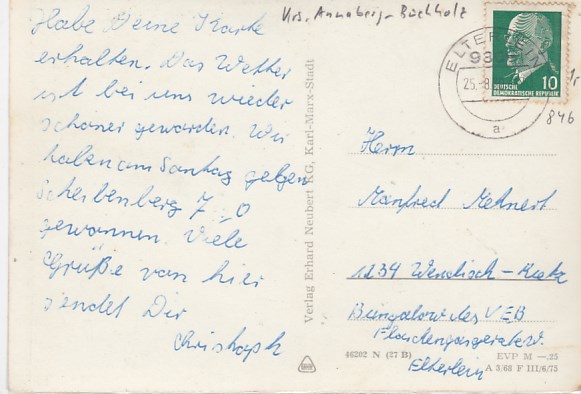 Krs. Annaberg-Buchholz
Habe Deine Karte
erhalten. Das Wetter
ist bei uns wieder
schöner geworden. Wir
haben am Sonntag gegen
Scheibenberg 7:0
gewonnen. Viele
Grüße von hier
sendet Dir
Christoph
Verlag Erhard Neubert KG, Karl-Marx-Stadt
ELTERLEIN
25.-8.
a
10
DEUTSCHE
DEMOKRATISCHE REPUBLIK
846
Herrn
Manfred Mehnert
1234 Wendisch-Rietz
Bungalow des VEB
Elterlein
46202 N (27 B)
EVP M —,25
A 3/68 F III/6/73